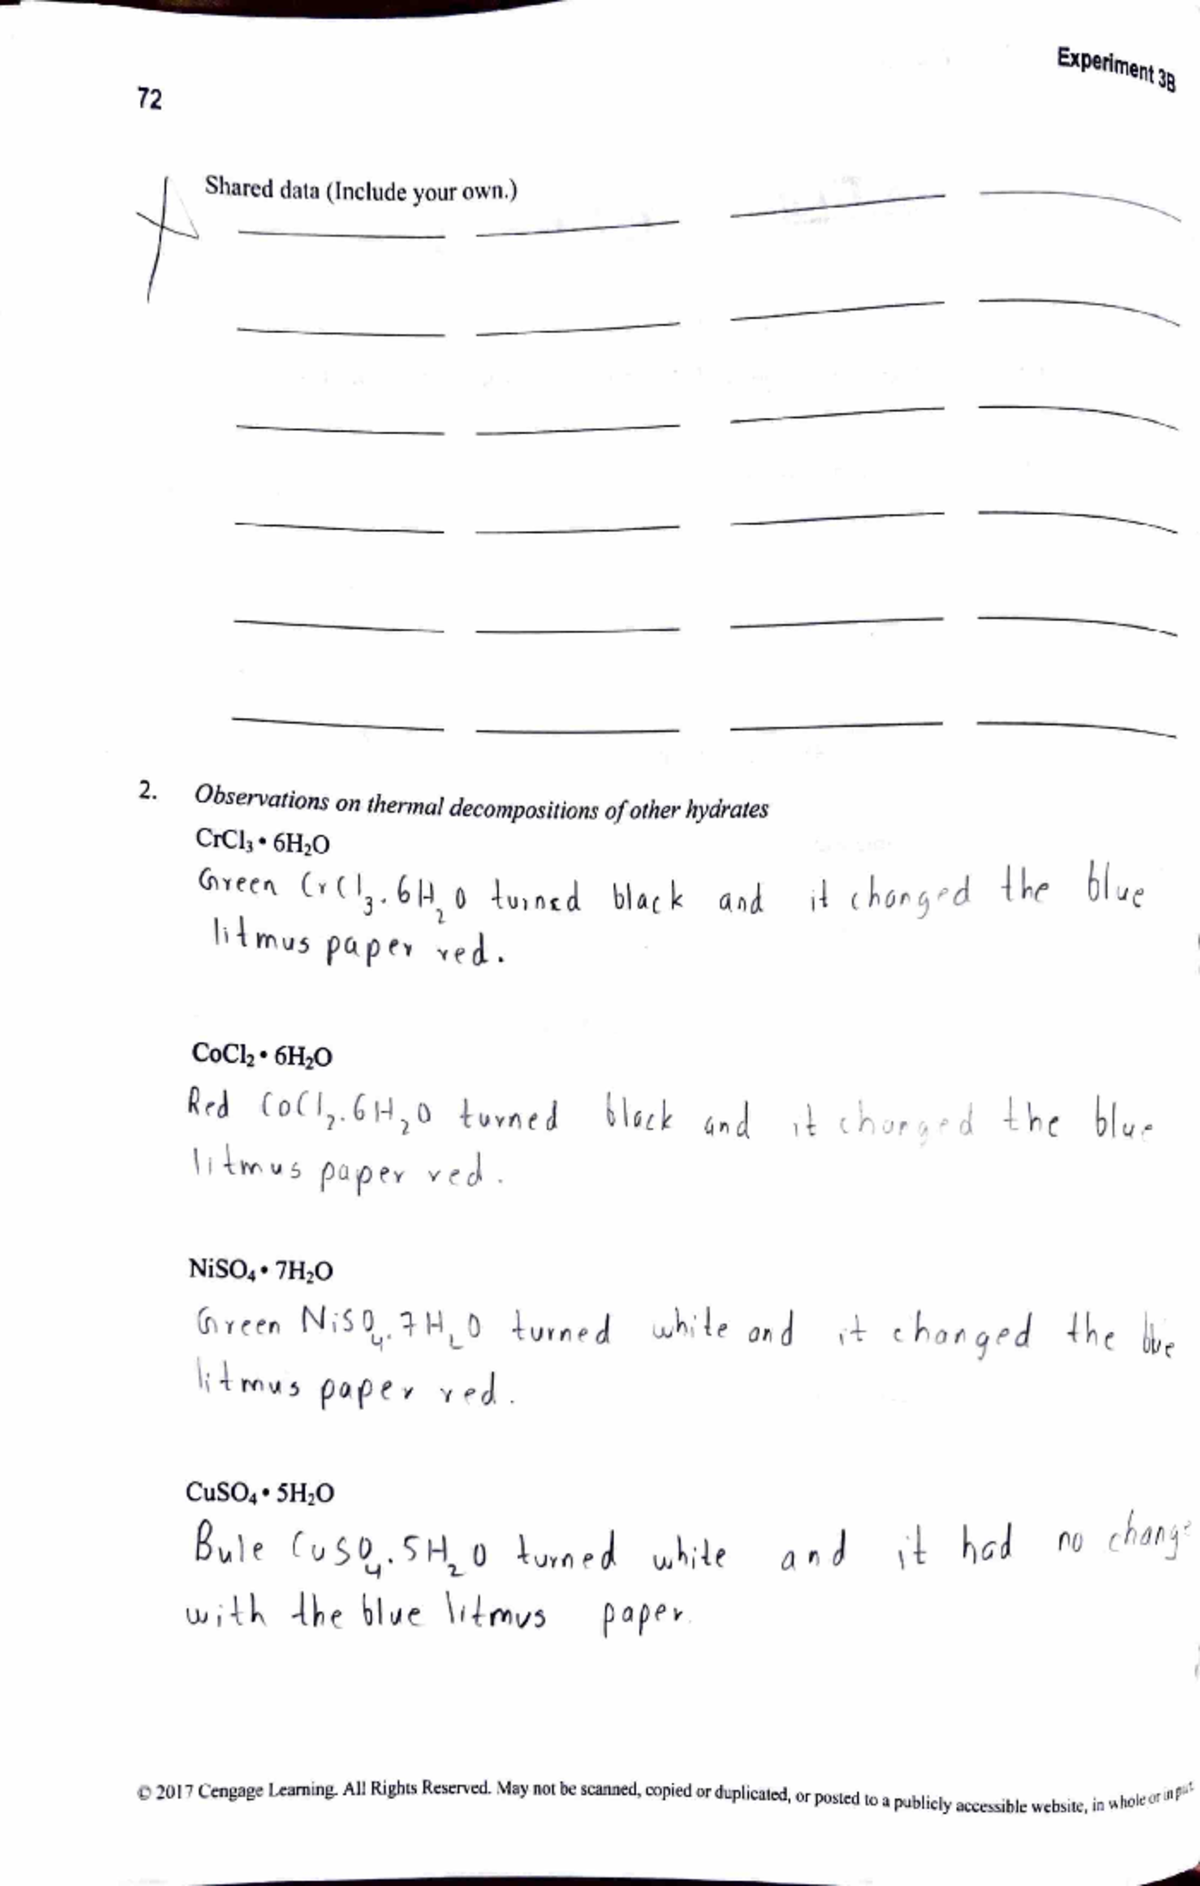 Experiment 3B
72
Shared data (Include your own.)
2. Observations on thermal decompositions of other hydrates
CrCl₃ • 6H₂O
Green CrCl₃.6H₂O turned black and it changed the blue
litmus paper red.
CoCl₂ • 6H₂O
Red CoCl₂.6H₂O turned black and it changed the blue
litmus paper red.
NiSO₄ • 7H₂O
Green NiSO₄.7H₂O turned white and it changed the blue
litmus paper red.
CuSO₄ • 5H₂O
Bule CuSO₄.5H₂O turned white and it had no change
with the blue litmus paper.
© 2017 Cengage Learning. All Rights Reserved. May not be scanned, copied or duplicated, or posted to a publicly accessible website, in whole or in